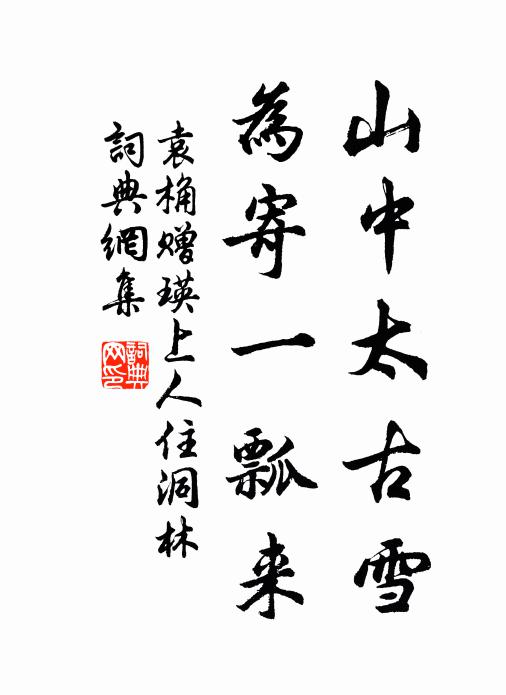 山中太古雪
為寄一瓢来
袁桷赠瑛上人住洞林
詞典網集
詞典网印